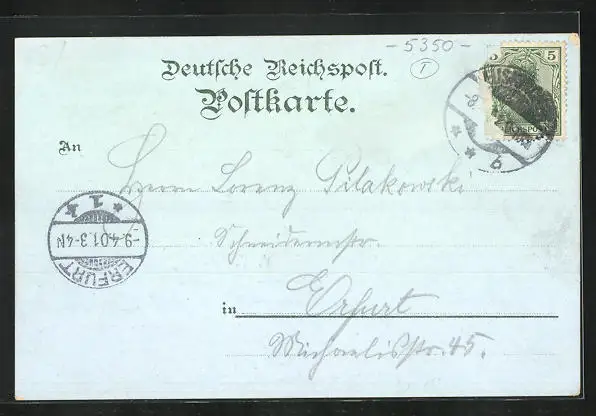 - 5350 -
Deutsche Reichspost.
Postkarte.
5
An
Herrn Lorenz Pilakowski
Schneidermstr.
in Erfurt
Michaelisstr. 45.
ERFURT
-9.4.01.3-4N
* 1 *